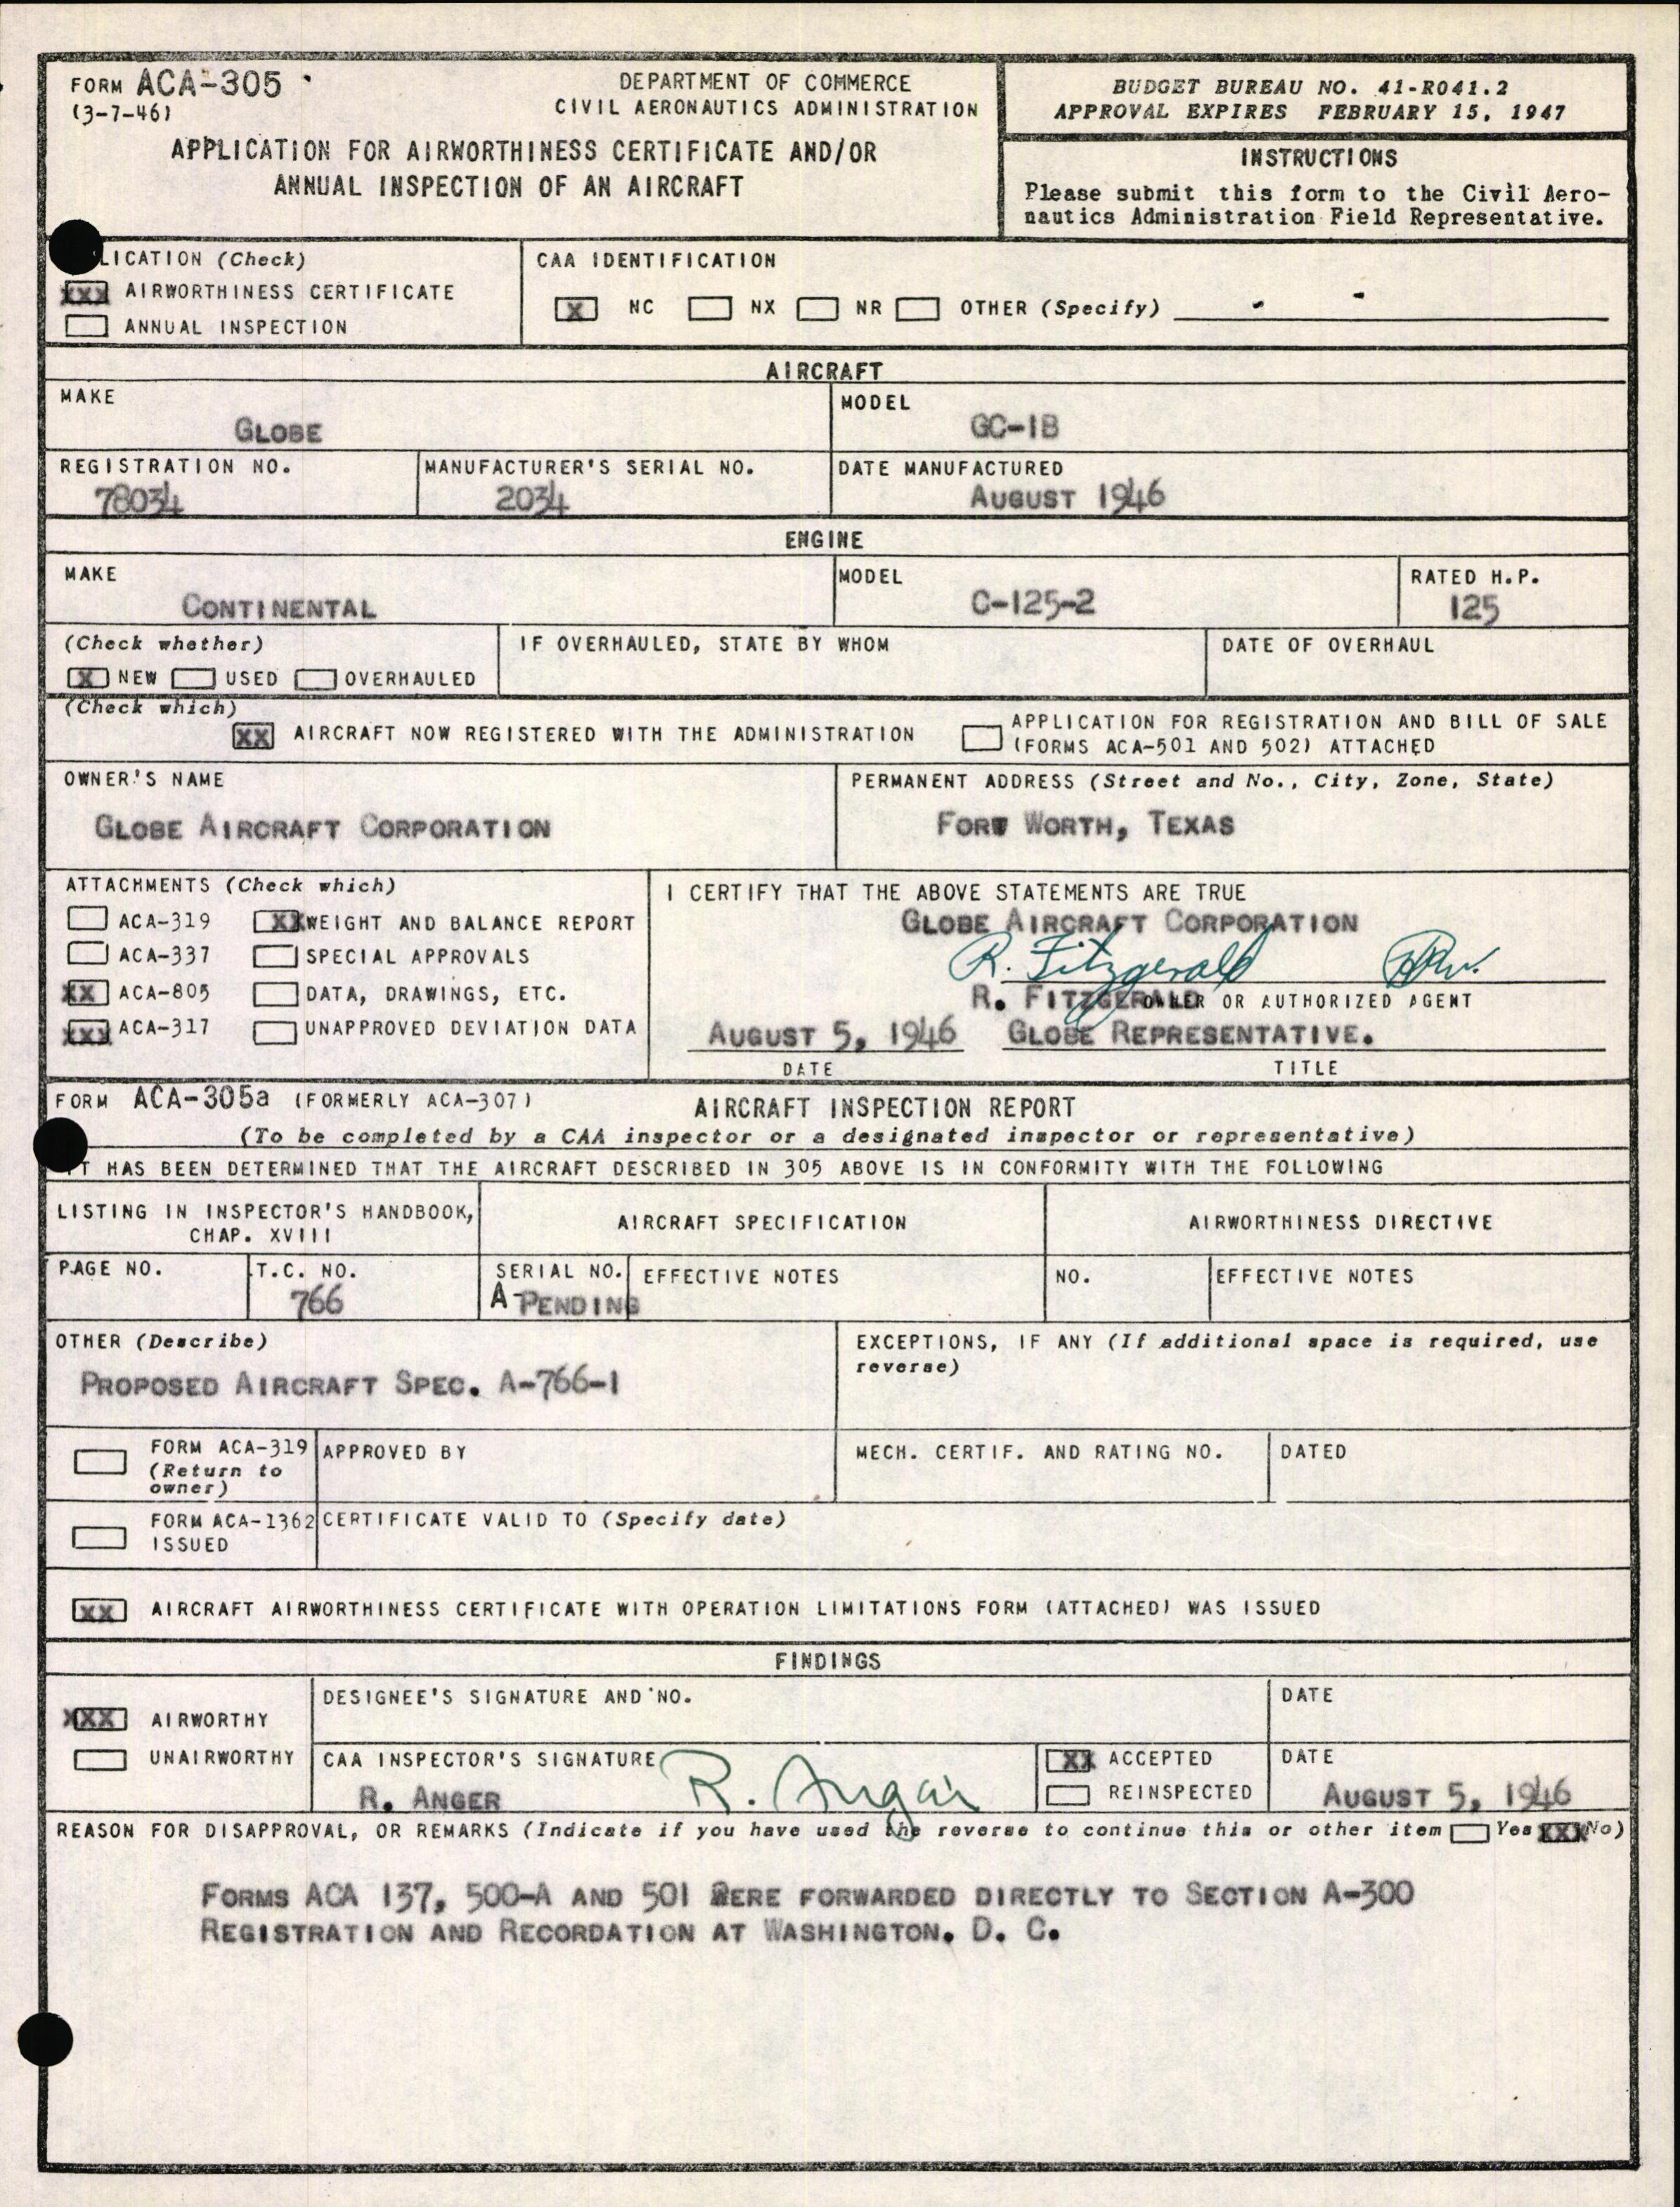 FORM ACA-305
(3-7-46)
DEPARTMENT OF COMMERCE
CIVIL AERONAUTICS ADMINISTRATION
APPLICATION FOR AIRWORTHINESS CERTIFICATE AND/OR
ANNUAL INSPECTION OF AN AIRCRAFT
BUDGET BUREAU NO. 41-R041.2
APPROVAL EXPIRES FEBRUARY 15, 1947
INSTRUCTIONS
Please submit this form to the Civil Aero-
nautics Administration Field Representative.
LICATION (Check)
XXX AIRWORTHINESS CERTIFICATE
ANNUAL INSPECTION
CAA IDENTIFICATION
X NC NX NR OTHER (Specify)
AIRCRAFT
MAKE
GLOBE
MODEL
GC-1B
REGISTRATION NO.
78034
MANUFACTURER'S SERIAL NO.
2034
DATE MANUFACTURED
AUGUST 1946
ENGINE
MAKE
CONTINENTAL
MODEL
C-125-2
RATED H.P.
125
(Check whether)
X NEW USED OVERHAULED
IF OVERHAULED, STATE BY WHOM
DATE OF OVERHAUL
(Check which)
XX AIRCRAFT NOW REGISTERED WITH THE ADMINISTRATION
APPLICATION FOR REGISTRATION AND BILL OF SALE
(FORMS ACA-501 AND 502) ATTACHED
OWNER'S NAME
GLOBE AIRCRAFT CORPORATION
PERMANENT ADDRESS (Street and No., City, Zone, State)
FORT WORTH, TEXAS
ATTACHMENTS (Check which)
ACA-319 XX WEIGHT AND BALANCE REPORT
ACA-337 SPECIAL APPROVALS
XX ACA-805 DATA, DRAWINGS, ETC.
XXX ACA-317 UNAPPROVED DEVIATION DATA
I CERTIFY THAT THE ABOVE STATEMENTS ARE TRUE
GLOBE AIRCRAFT CORPORATION
R. Fitzgerald
R. FITZGERALD OWNER OR AUTHORIZED AGENT
AUGUST 5, 1946 GLOBE REPRESENTATIVE.
DATE TITLE
FORM ACA-305a (FORMERLY ACA-307)
AIRCRAFT INSPECTION REPORT
(To be completed by a CAA inspector or a designated inspector or representative)
IT HAS BEEN DETERMINED THAT THE AIRCRAFT DESCRIBED IN 305 ABOVE IS IN CONFORMITY WITH THE FOLLOWING
LISTING IN INSPECTOR'S HANDBOOK,
CHAP. XVIII
AIRCRAFT SPECIFICATION
AIRWORTHINESS DIRECTIVE
PAGE NO.
T.C. NO.
766
SERIAL NO.
A-PENDING
EFFECTIVE NOTES
NO.
EFFECTIVE NOTES
OTHER (Describe)
PROPOSED AIRCRAFT SPEC. A-766-1
EXCEPTIONS, IF ANY (If additional space is required, use
reverse)
FORM ACA-319
(Return to
owner)
APPROVED BY
MECH. CERTIF. AND RATING NO.
DATED
FORM ACA-1362
ISSUED
CERTIFICATE VALID TO (Specify date)
XX AIRCRAFT AIRWORTHINESS CERTIFICATE WITH OPERATION LIMITATIONS FORM (ATTACHED) WAS ISSUED
FINDINGS
XXX AIRWORTHY
UNAIRWORTHY
DESIGNEE'S SIGNATURE AND NO.
DATE
CAA INSPECTOR'S SIGNATURE
R. ANGER
XX ACCEPTED
REINSPECTED
DATE
AUGUST 5, 1946
REASON FOR DISAPPROVAL, OR REMARKS (Indicate if you have used the reverse to continue this or other item Yes XXX No)
FORMS ACA 137, 500-A AND 501 WERE FORWARDED DIRECTLY TO SECTION A-300
REGISTRATION AND RECORDATION AT WASHINGTON. D. C.